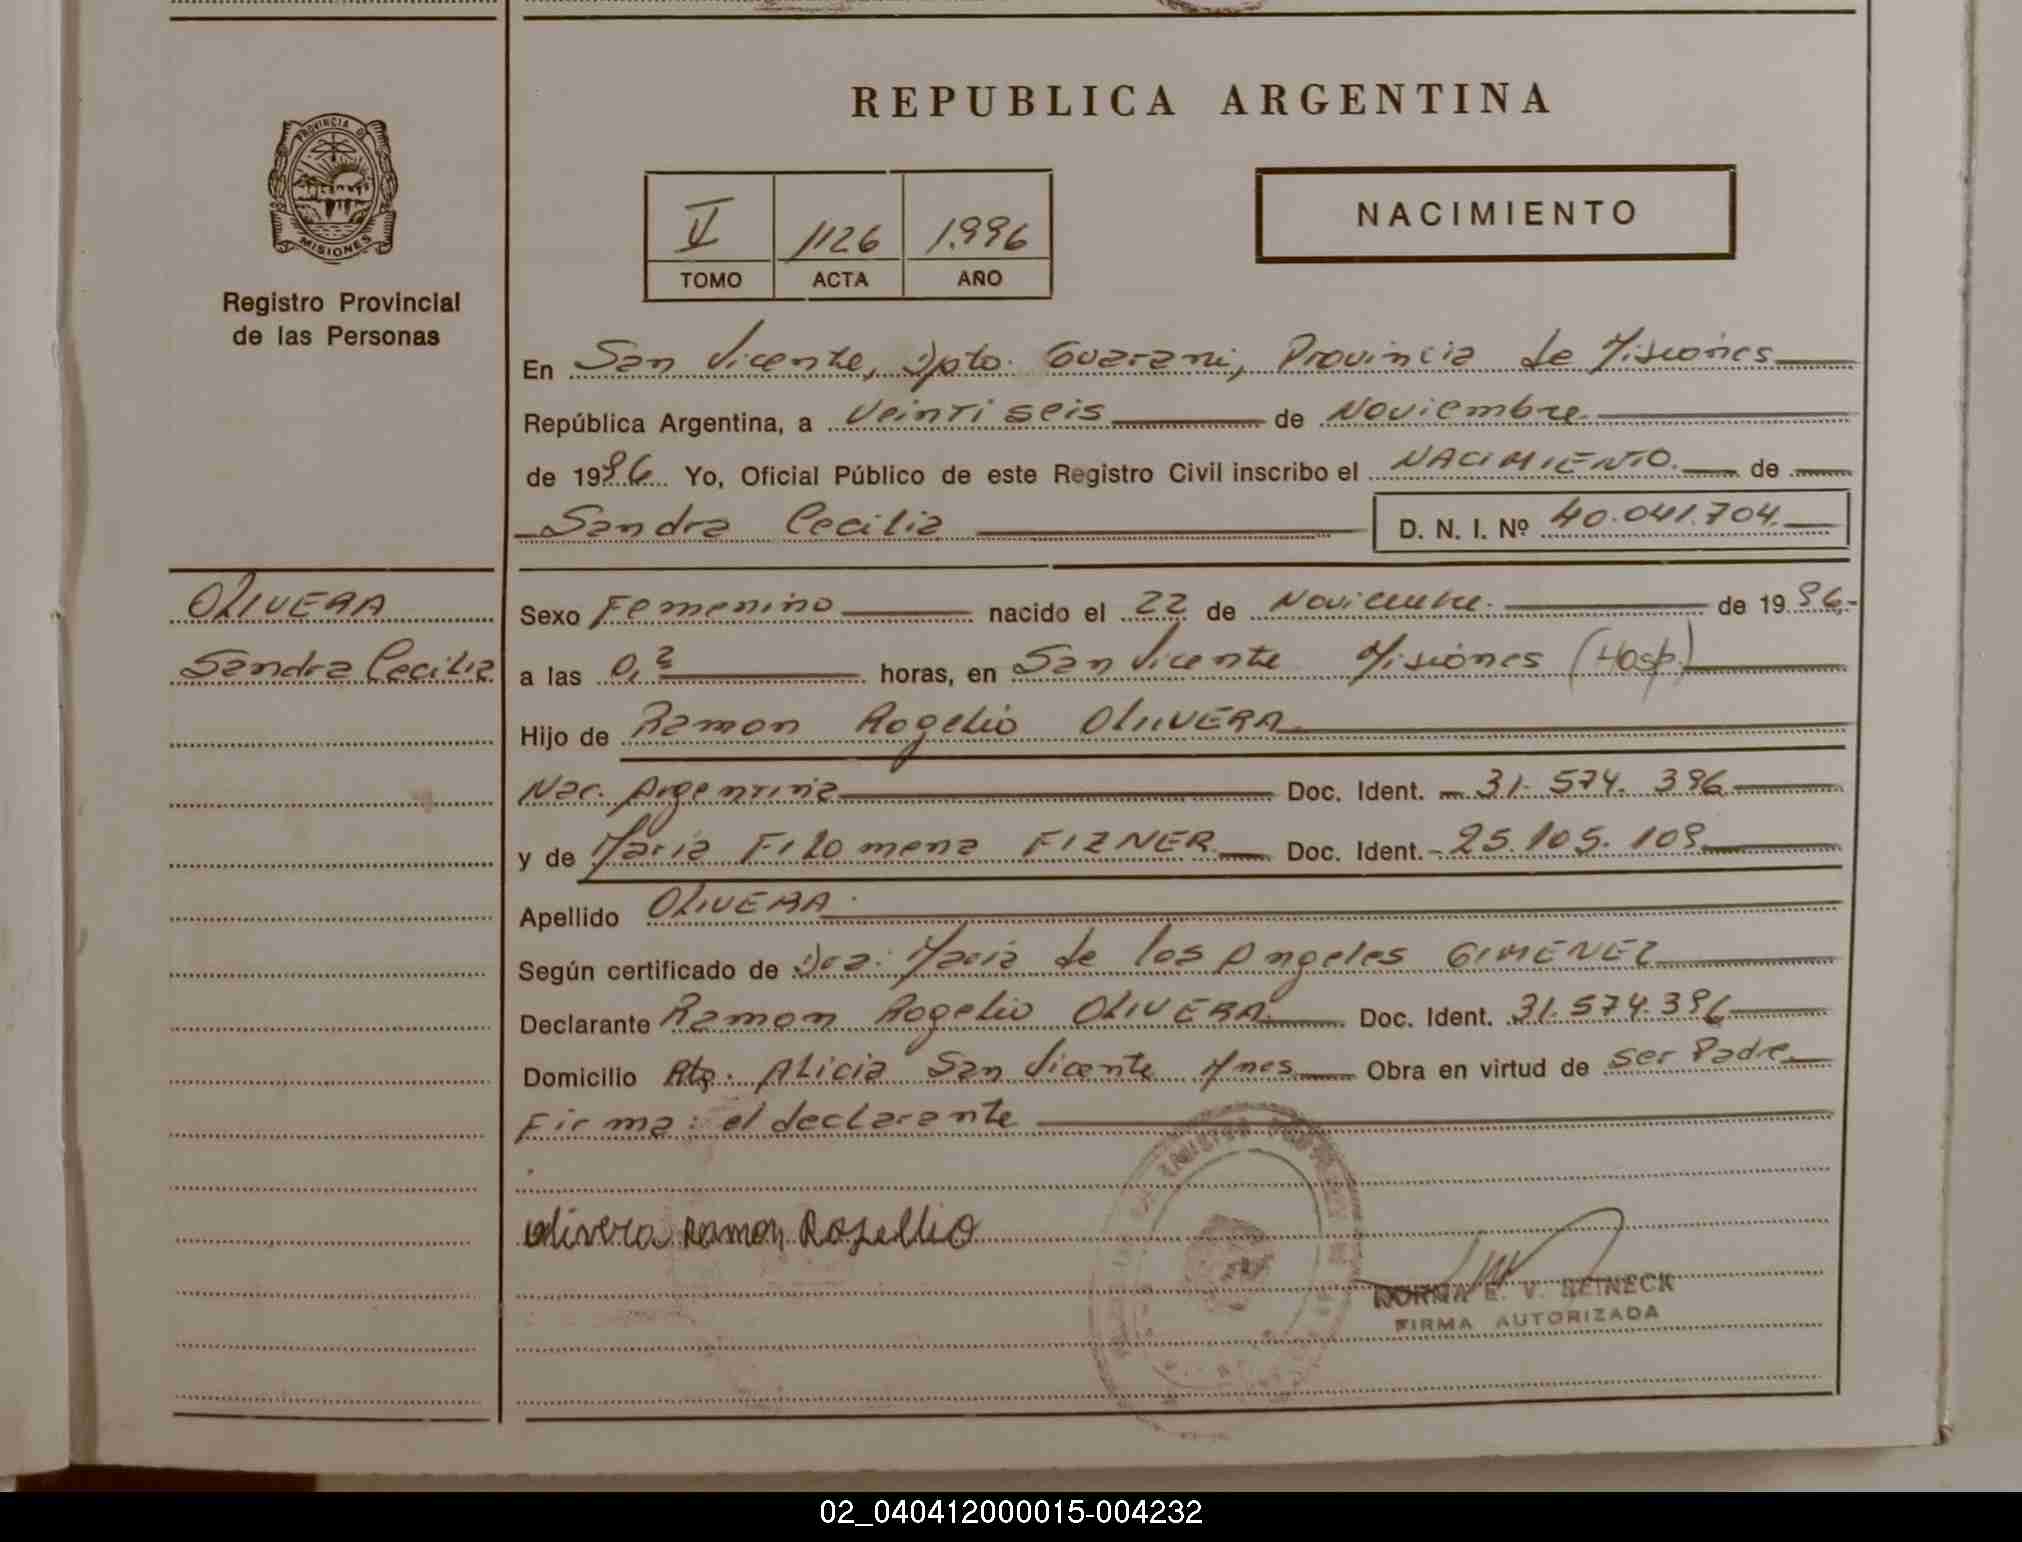 REPUBLICA ARGENTINA
PROVINCIA DE
MISIONES
Registro Provincial
de las Personas
V 1126 1.996
TOMO ACTA AÑO
NACIMIENTO
En San Vicente, Dpto. Guarani, Provincia de Misiones
República Argentina, a Veintiseis de Noviembre
de 1996 Yo, Oficial Público de este Registro Civil inscribo el NACIMIENTO de
Sandra Cecilia D. N. I. Nº 40.041.704.
OLIVERA
Sandra Cecilia
Sexo Femenino nacido el 22 de Noviembre de 1996.-
a las 0,2 horas, en San Vicente Misiones (Hosp.)
Hijo de Ramon Rogelio OLIVERA
Nac. Argentina Doc. Ident. 31.574.396
y de Maria Filomena FIZNER Doc. Ident. 25.105.109
Apellido OLIVERA.
Según certificado de Dra. Maria de los Angeles GIMENEZ
Declarante Ramon Rogelio OLIVERA Doc. Ident. 31.574.396
Domicilio Pto. Alicia San Vicente Mnes Obra en virtud de ser Padre
Firma: el declarante
olivera Ramon Rogellio
NORMA E. V. REINECK
FIRMA AUTORIZADA
02_040412000015-004232